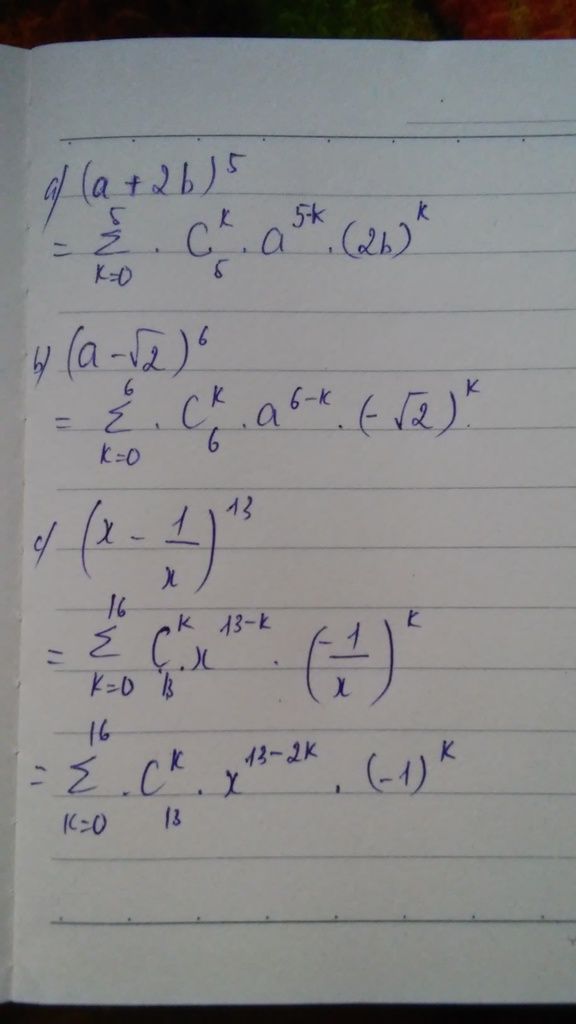 a) (a + 2b)^5
= \sum_{k=0}^{5} . C_5^k . a^{5-k} . (2b)^k
b) (a - √2)^6
= \sum_{k=0}^{6} . C_6^k . a^{6-k} . (-√2)^k.
c) (x - \frac{1}{x})^{13}
= \sum_{k=0}^{16} C_{13}^k . x^{13-k} . (\frac{-1}{x})^k
= \sum_{k=0}^{16} . C_{13}^k . x^{13-2k} . (-1)^k